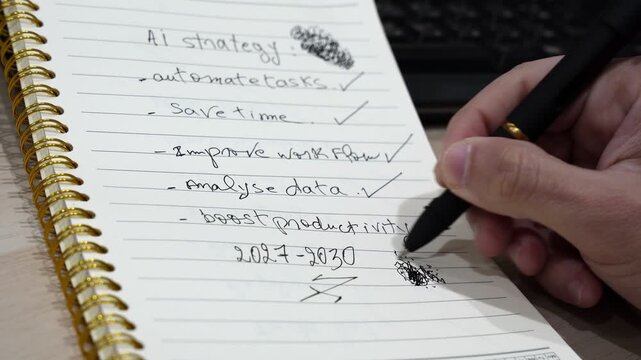 AI strategy :
- automate tasks. ✓
- Save time. ✓
- Improve workflow ✓
- Analyse data. ✓
- boost productivity
2027-2030